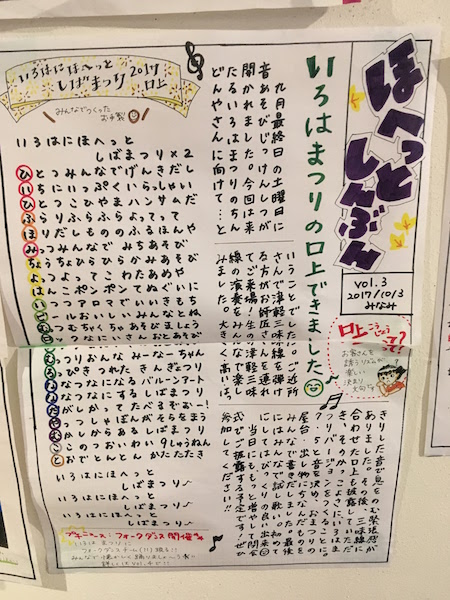 ほへっと
しんぶん
vol.3
2017/10/3
みなみ
口上って?
こうじょう
お客さんを
誘うリズムが
楽しい
決まり
文句☆
いろはまつりの口上できました
九月最終日の土曜日に
音あそびじっけんしつが
開かれました。今回は来
たるいろはまつりのちん
どんやさんに向けて…と
いうことでした。ご近所
さんで津軽三味線を弾け
る方がお師匠さんを連れ
てご来場!生の津軽三味
線の演奏をみんなで楽し
みました。大きく高いは
っきりした音で息をのむ緊張感が
ありました。その後、三味線に
合わせた口上も披露していただ
き、そのかっこよさにいろはに
バージョンを
7・5と音を決め、おまつりの
屋台・出し物
みんなで書きだしました。最後
にはみんなで試し歌い。初めて
にしてはびっくりの良い出来!
当日にはもっと増やして
式でご披露する予定です!ぜひ
参加してください!!
いろはにほへ〜っと
しばまつり2017
口上
みんなでつくった
お手製
いろはにほへっと
しばまつり×2
ひとつみんなでげんきだし
いちにいっぷくいらっしゃい
ひとつこひやまハンサムだ
ふらりふらふらよってって
ほりだしもののするほんや
みっつみんなでみちあそび
ちょうちょひらひらかみあそび
よっつよってこわたあめや
はんこポンポンてぬぐいに
いつつアロマでいいきもち
ゴールおいしいみんなとね
むっつむちゃくちゃあそびましょう
むっつりおんなみーなーちゃん
ひっぴきつれたきんぎょつり
ななつなになるバルーンアート
なつなにするしばまつり
がしかってたべるぞおー!
やっつしゃぼんがそらをまう
むかしからあるしばまつり
ここのつおいわい9しゅうねん
とおでとんとんかたたたき
いろはにほへっと
しばまつり♪
いろはにほへっと
しばまつり♪
いろはにほへっと
しばまつり
プチニュース:フォークダンス開催